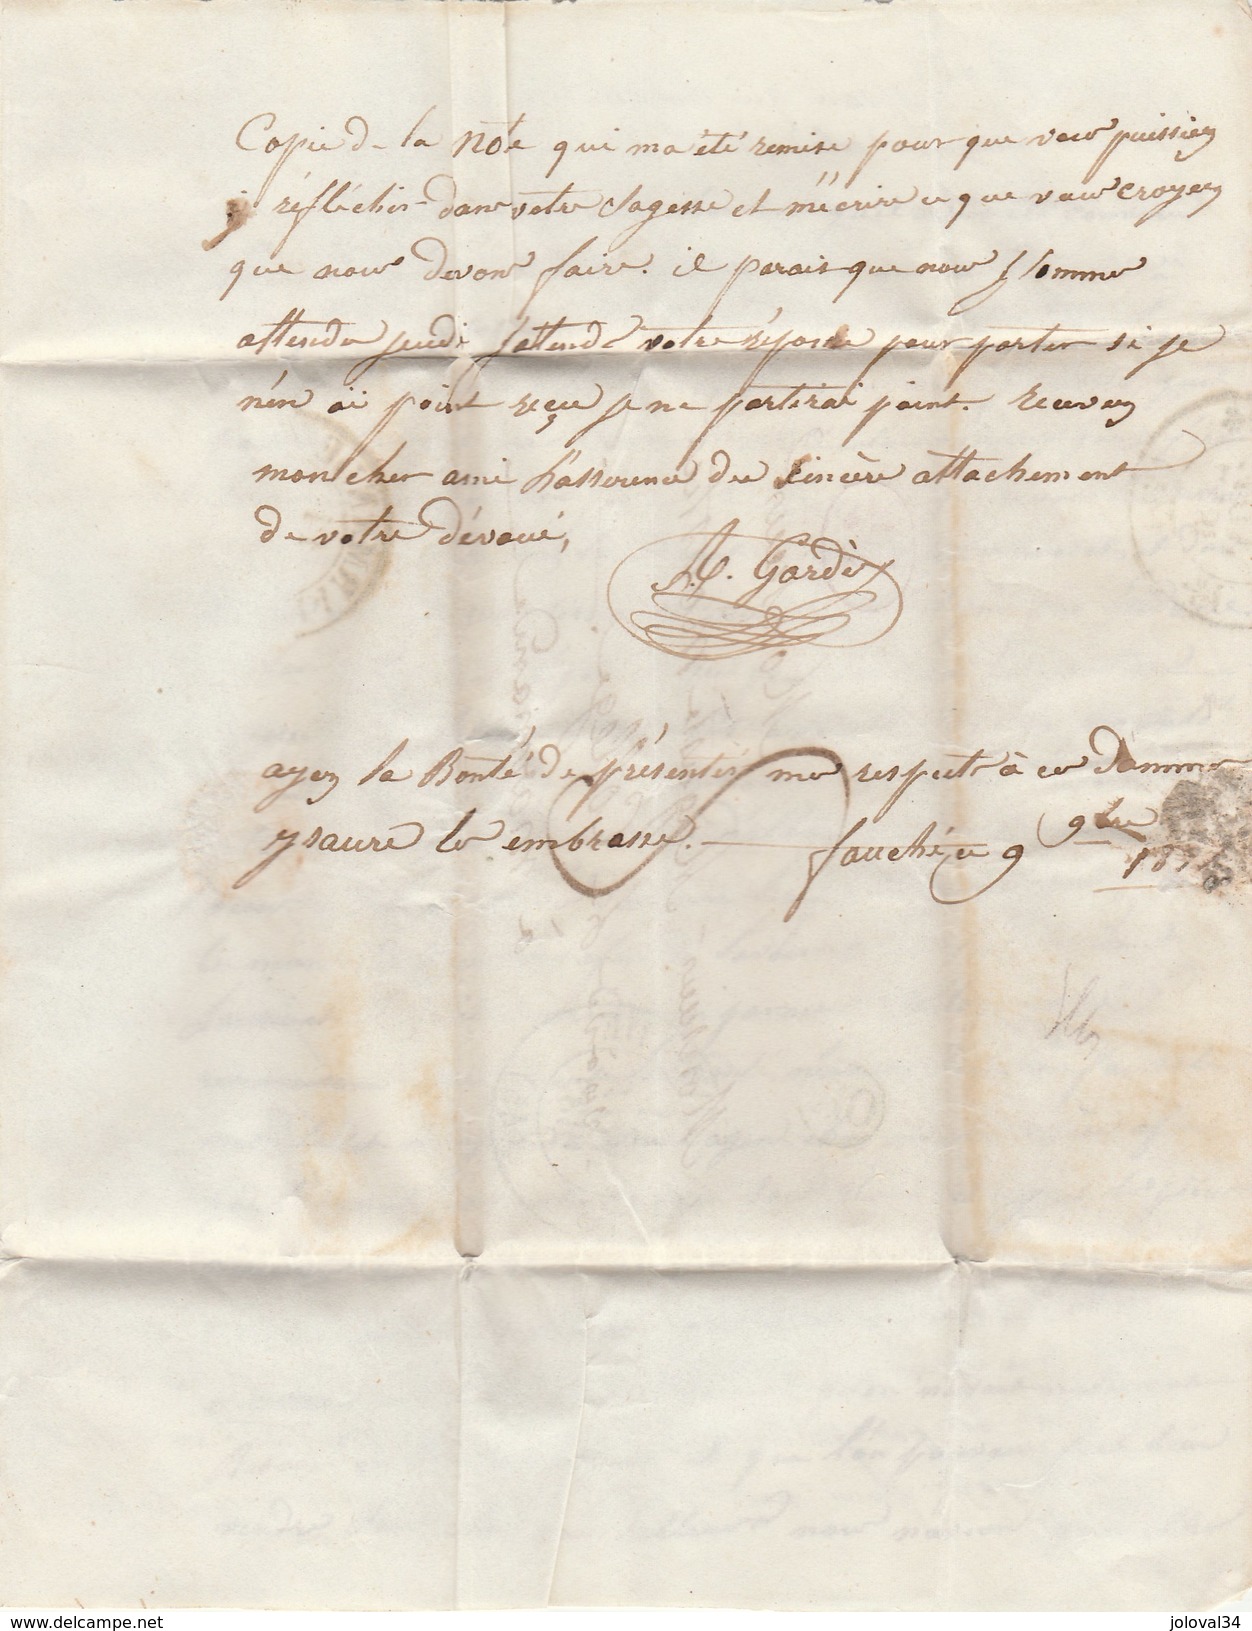 Copie de la Note qui ma été remise pour que vous puissiez
y réfléchir dans votre Sagesse et m'écrire ce que vous croyez
que nous devons faire. il parait que nous y somme
attendu jeudi jattends votre réponse pour partir si je
n'én ai point reçu je ne partirai point. recevez
mon cher ami l'assurence du sincère attachement
de votre dévoué,
A. Gardès
ayez la Bonté de présenter mes respects à ces Dammes
ysaure les embrasse.
fauché ce 9 9bre
www.delcampe.net
joloval34